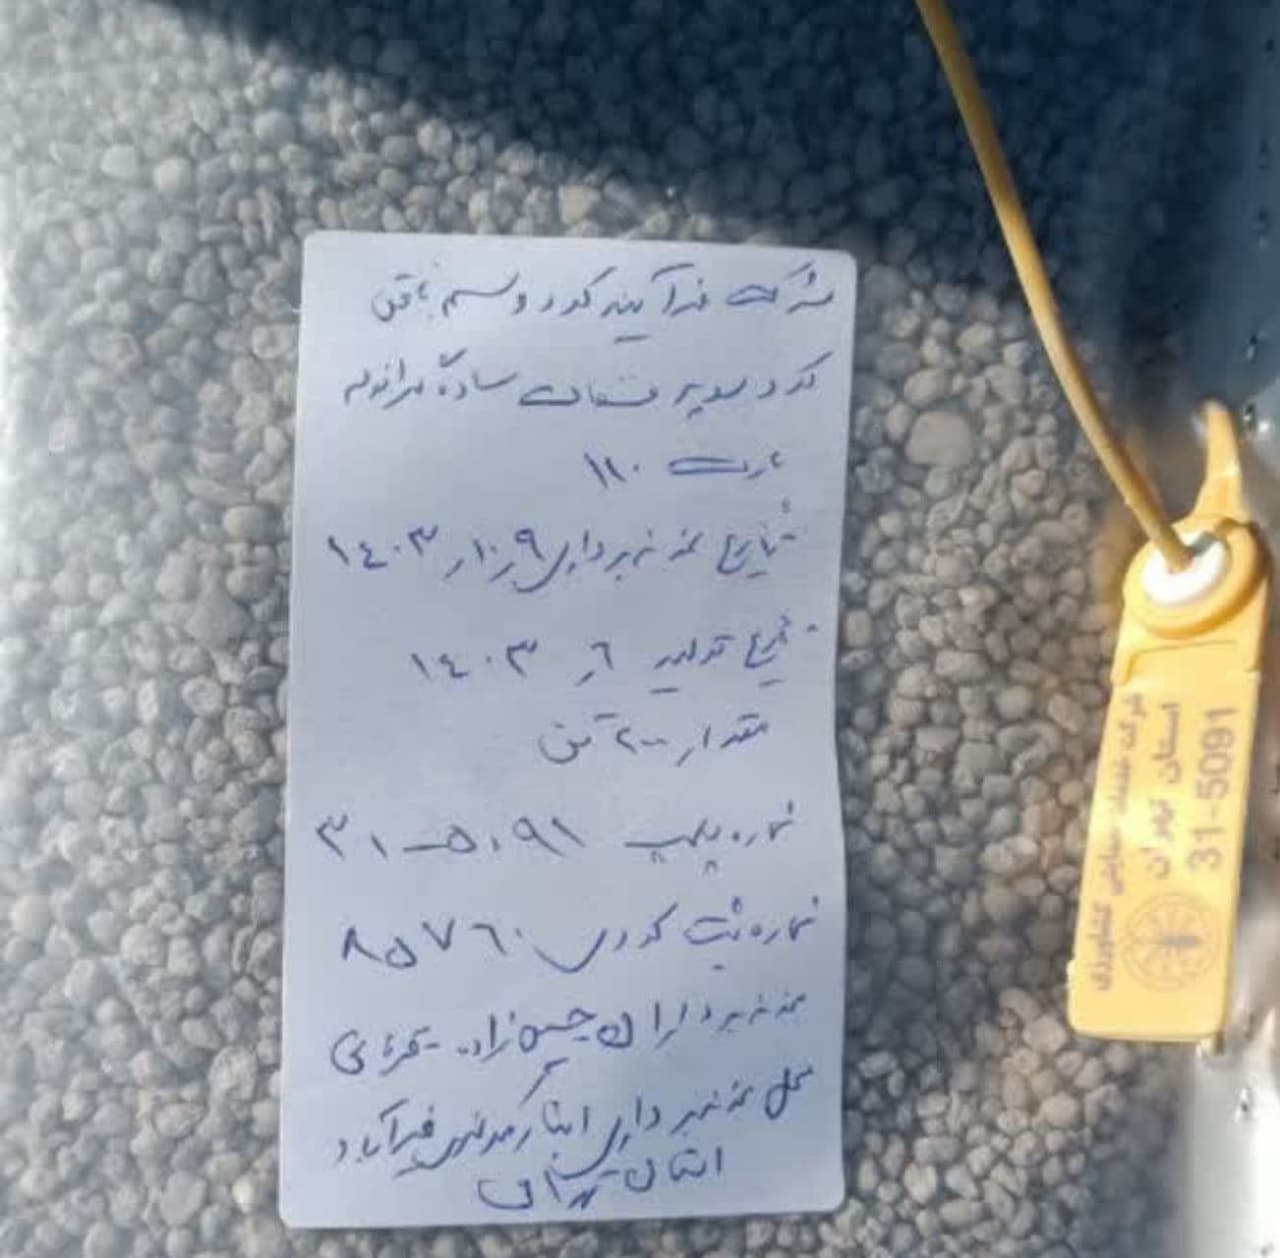 شرکت فرآیند کود و سم بافق
کود سوپر فسفات ساده گرانوله
پارت ۱۱۰
تاریخ نمونه برداری ۱۴۰۳/۱۰/۹
تاریخ تولید ۱۴۰۳/۶
مقدار ۲۰۰ تن
شماره پلمپ ۳۱-۵۰۹۱
شماره ثبت کودی ۸۵۷۶۰
نمونه برداران
محل نمونه برداری انبار فیرآباد
استان تهران
شرکت خدمات حمایتی کشاورزی
استان تهران
31-5091